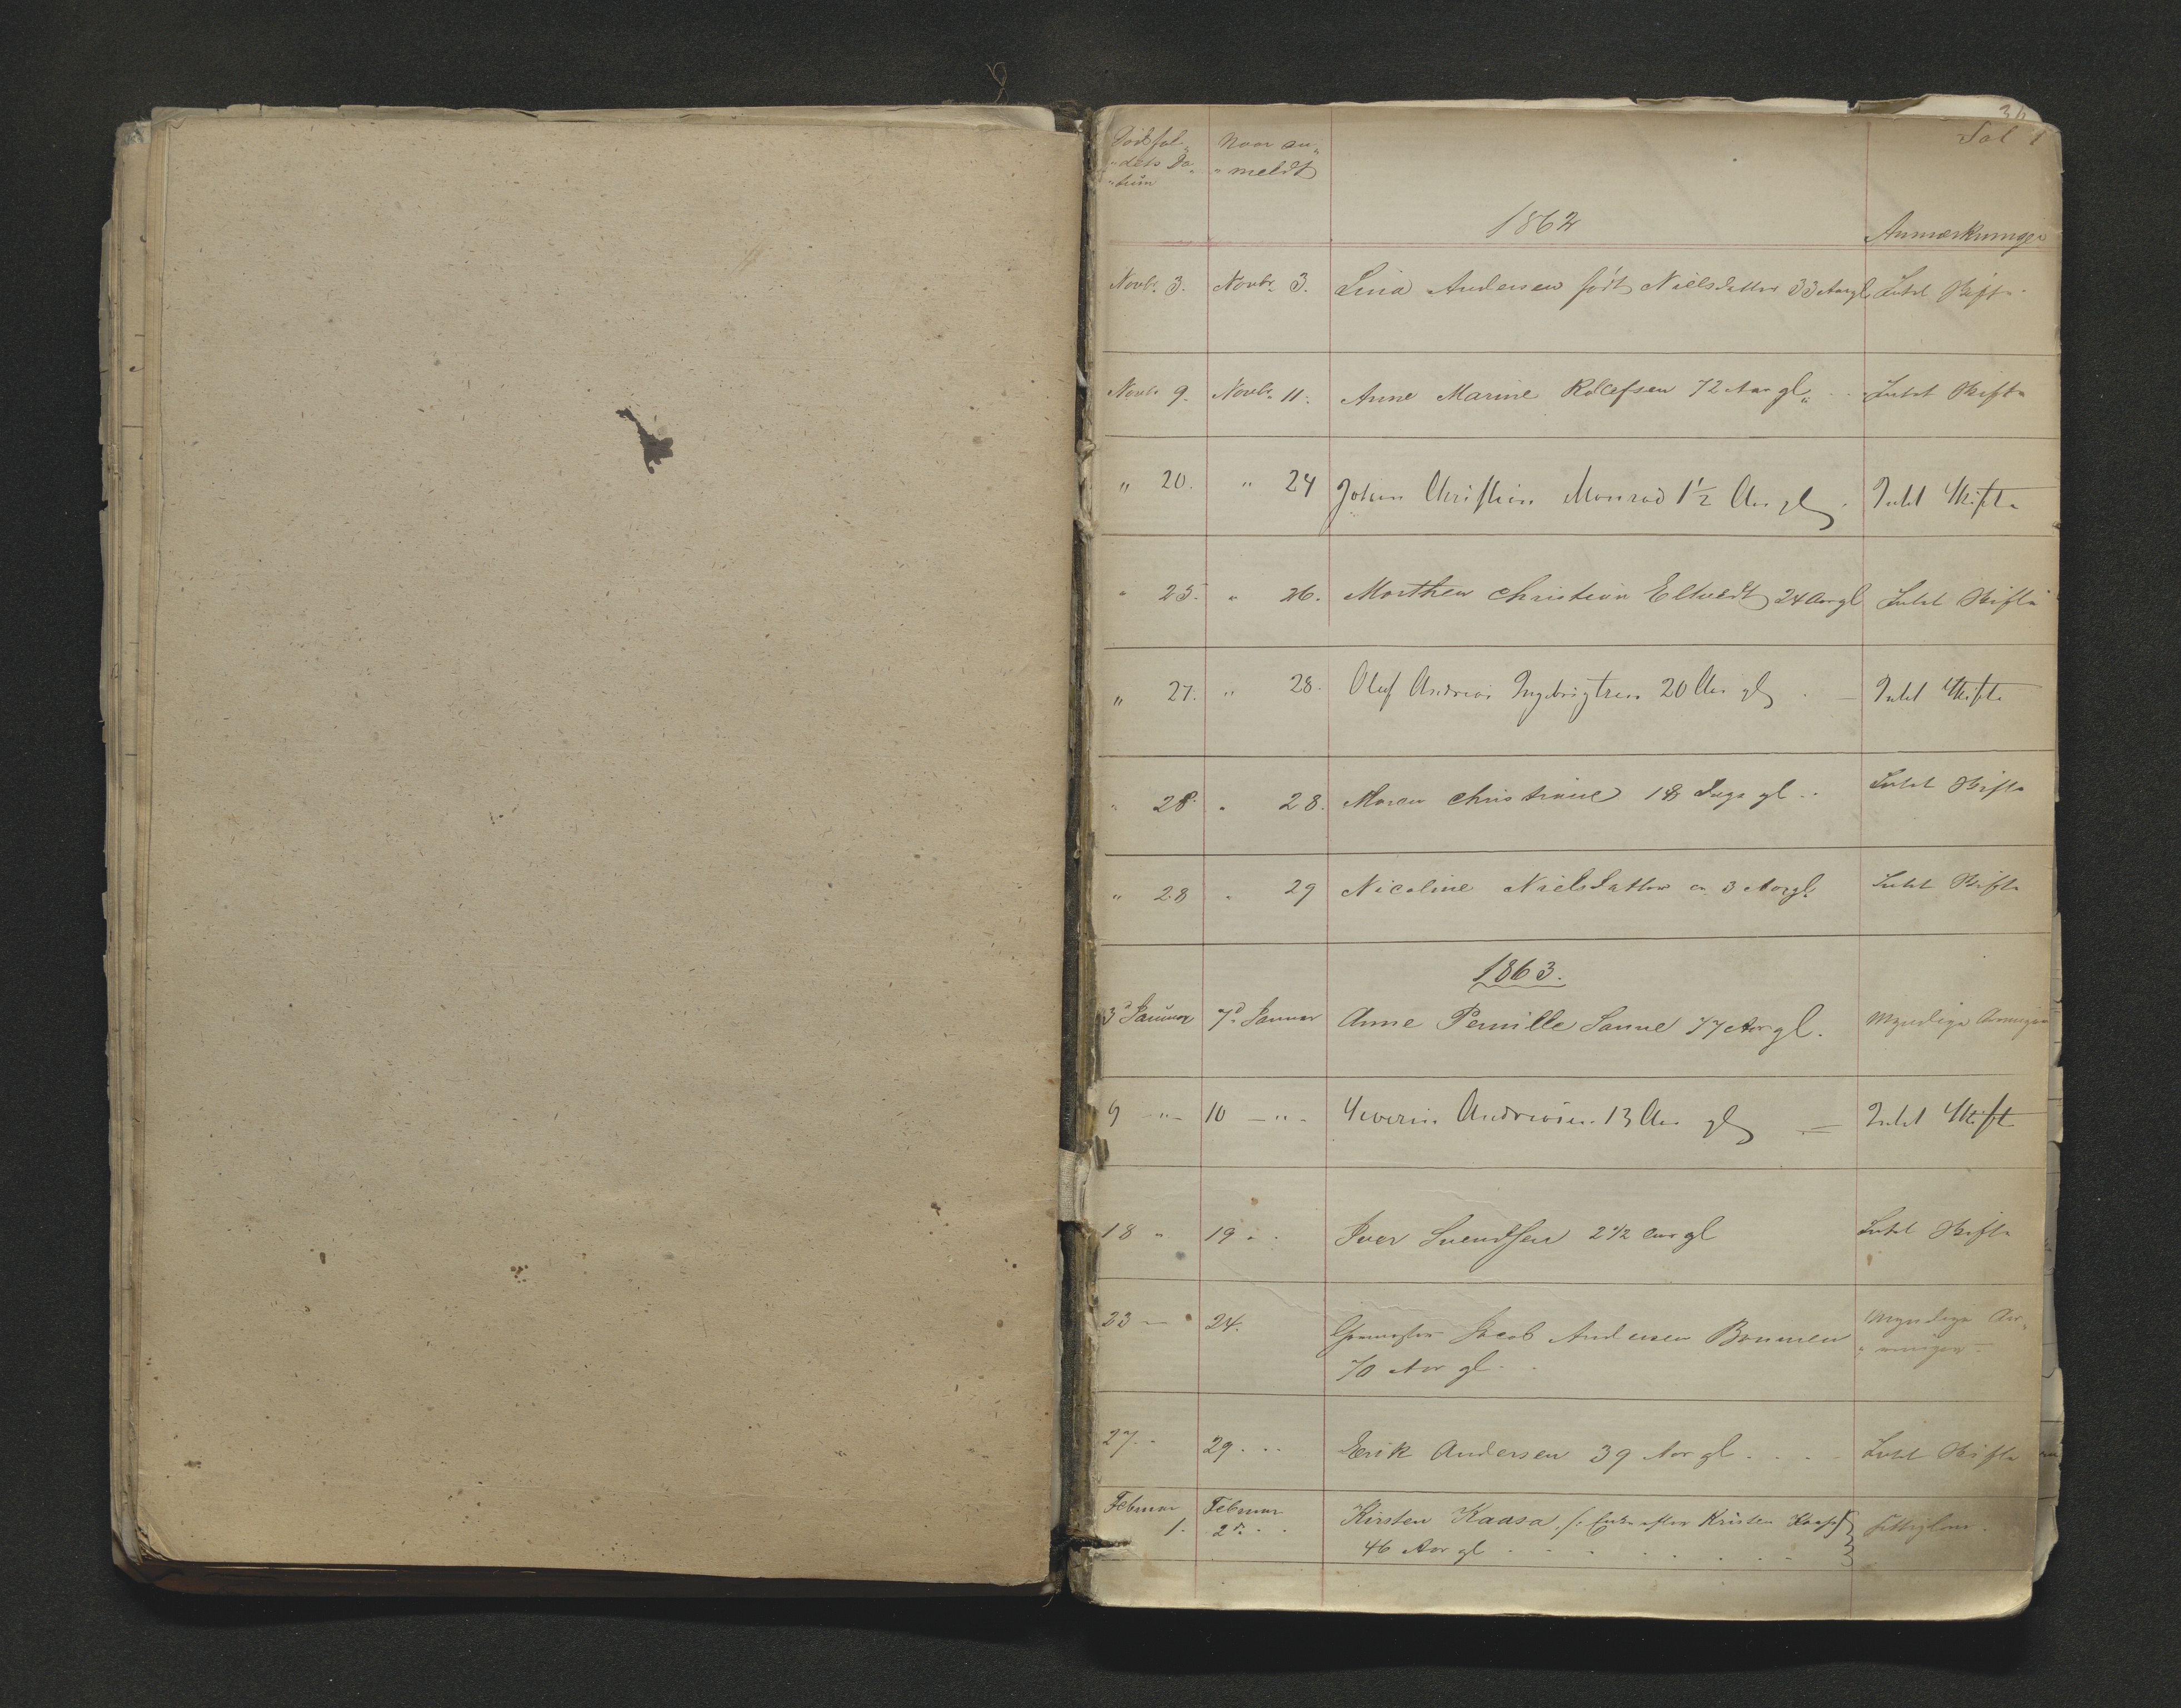 Fol 1
Dødsfal- Naar an-
-dets Da- -meldt
-tum
1862
Anmærkninger
Novbr. 3. Novbr. 3. Lina Andersen født Nielsdatter 33 Aar gl Intet Skifte
Novbr. 9. Novbr. 11. Anne Marine Rolefsen 72 Aar gl. Intet Skifte
" 20. " 24 Johan Christian Monrad 1½ Aar gl. Intet Skifte
" 25. " 26. Morthen Christian Eltvedt 24 Aar gl Intet Skifte
" 27. " 28. Oluf Andreas Ingebrigtsen 20 Aar gl. Intet Skifte
" 28. " 28. Maren Christiane 18 Dage gl.. Intet Skifte
" 28 " 29 Nicoline Nielsdatter ca 3 Aar gl. Intet Skifte
1863.
3d Januar 7d. Januar Anne Pernille Sanne 77 Aar gl. Myndige Arvinger
9 — " — 10 — " - Severin Andresen 13 Aar gl Intet Skifte
18 " 19 " . Iver Svendsen 2 1/2 Aar gl Intet Skifte
23 — 24. Jacob Andersen Brommen Myndige Ar-
70 Aar gl. - vinger —
27. - 29. .. Erik Andersen 39 Aar gl . . . . Intet Skifte
Februar Februar Kirsten Kaasa /: Enke efter Kristen Kaasa
1. 2d. . . 46 Aar gl